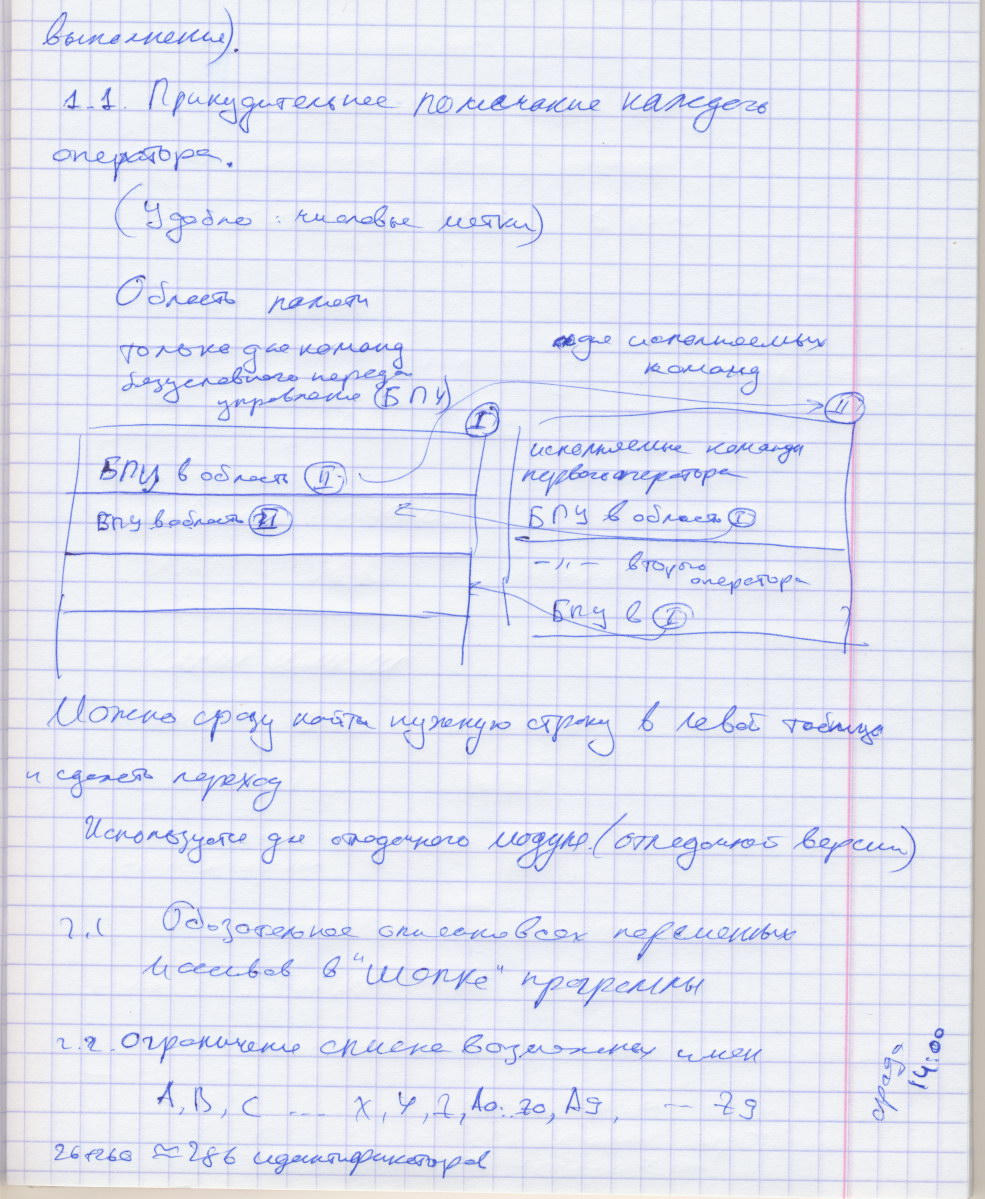 выполнения).
1.1. Принудительное помечание каждого
оператора.
(Удобно: числовые метки)
Область памяти
только для команд
безусловного переда
управление (БПУ)
для исполняемых
команд
I
II
БПУ в область II
БПУ в область II
исполняемые команды
первого оператора
БПУ в область I
-"- второго
оператора
БПУ в I
Можно сразу найти нужную строку в левой таблице
и сделать переход
Используется для отладочного модуля. (отладочной версии)
2.1 Обязательное описание всех переменных
массивов в "шапке" программы
2.2. Ограничение списка возможных имен
A, B, C ... X, Y, Z, A0..Z0, A9, ... Z9
26+260 ≈ 286 идентификаторов
среда
14:00